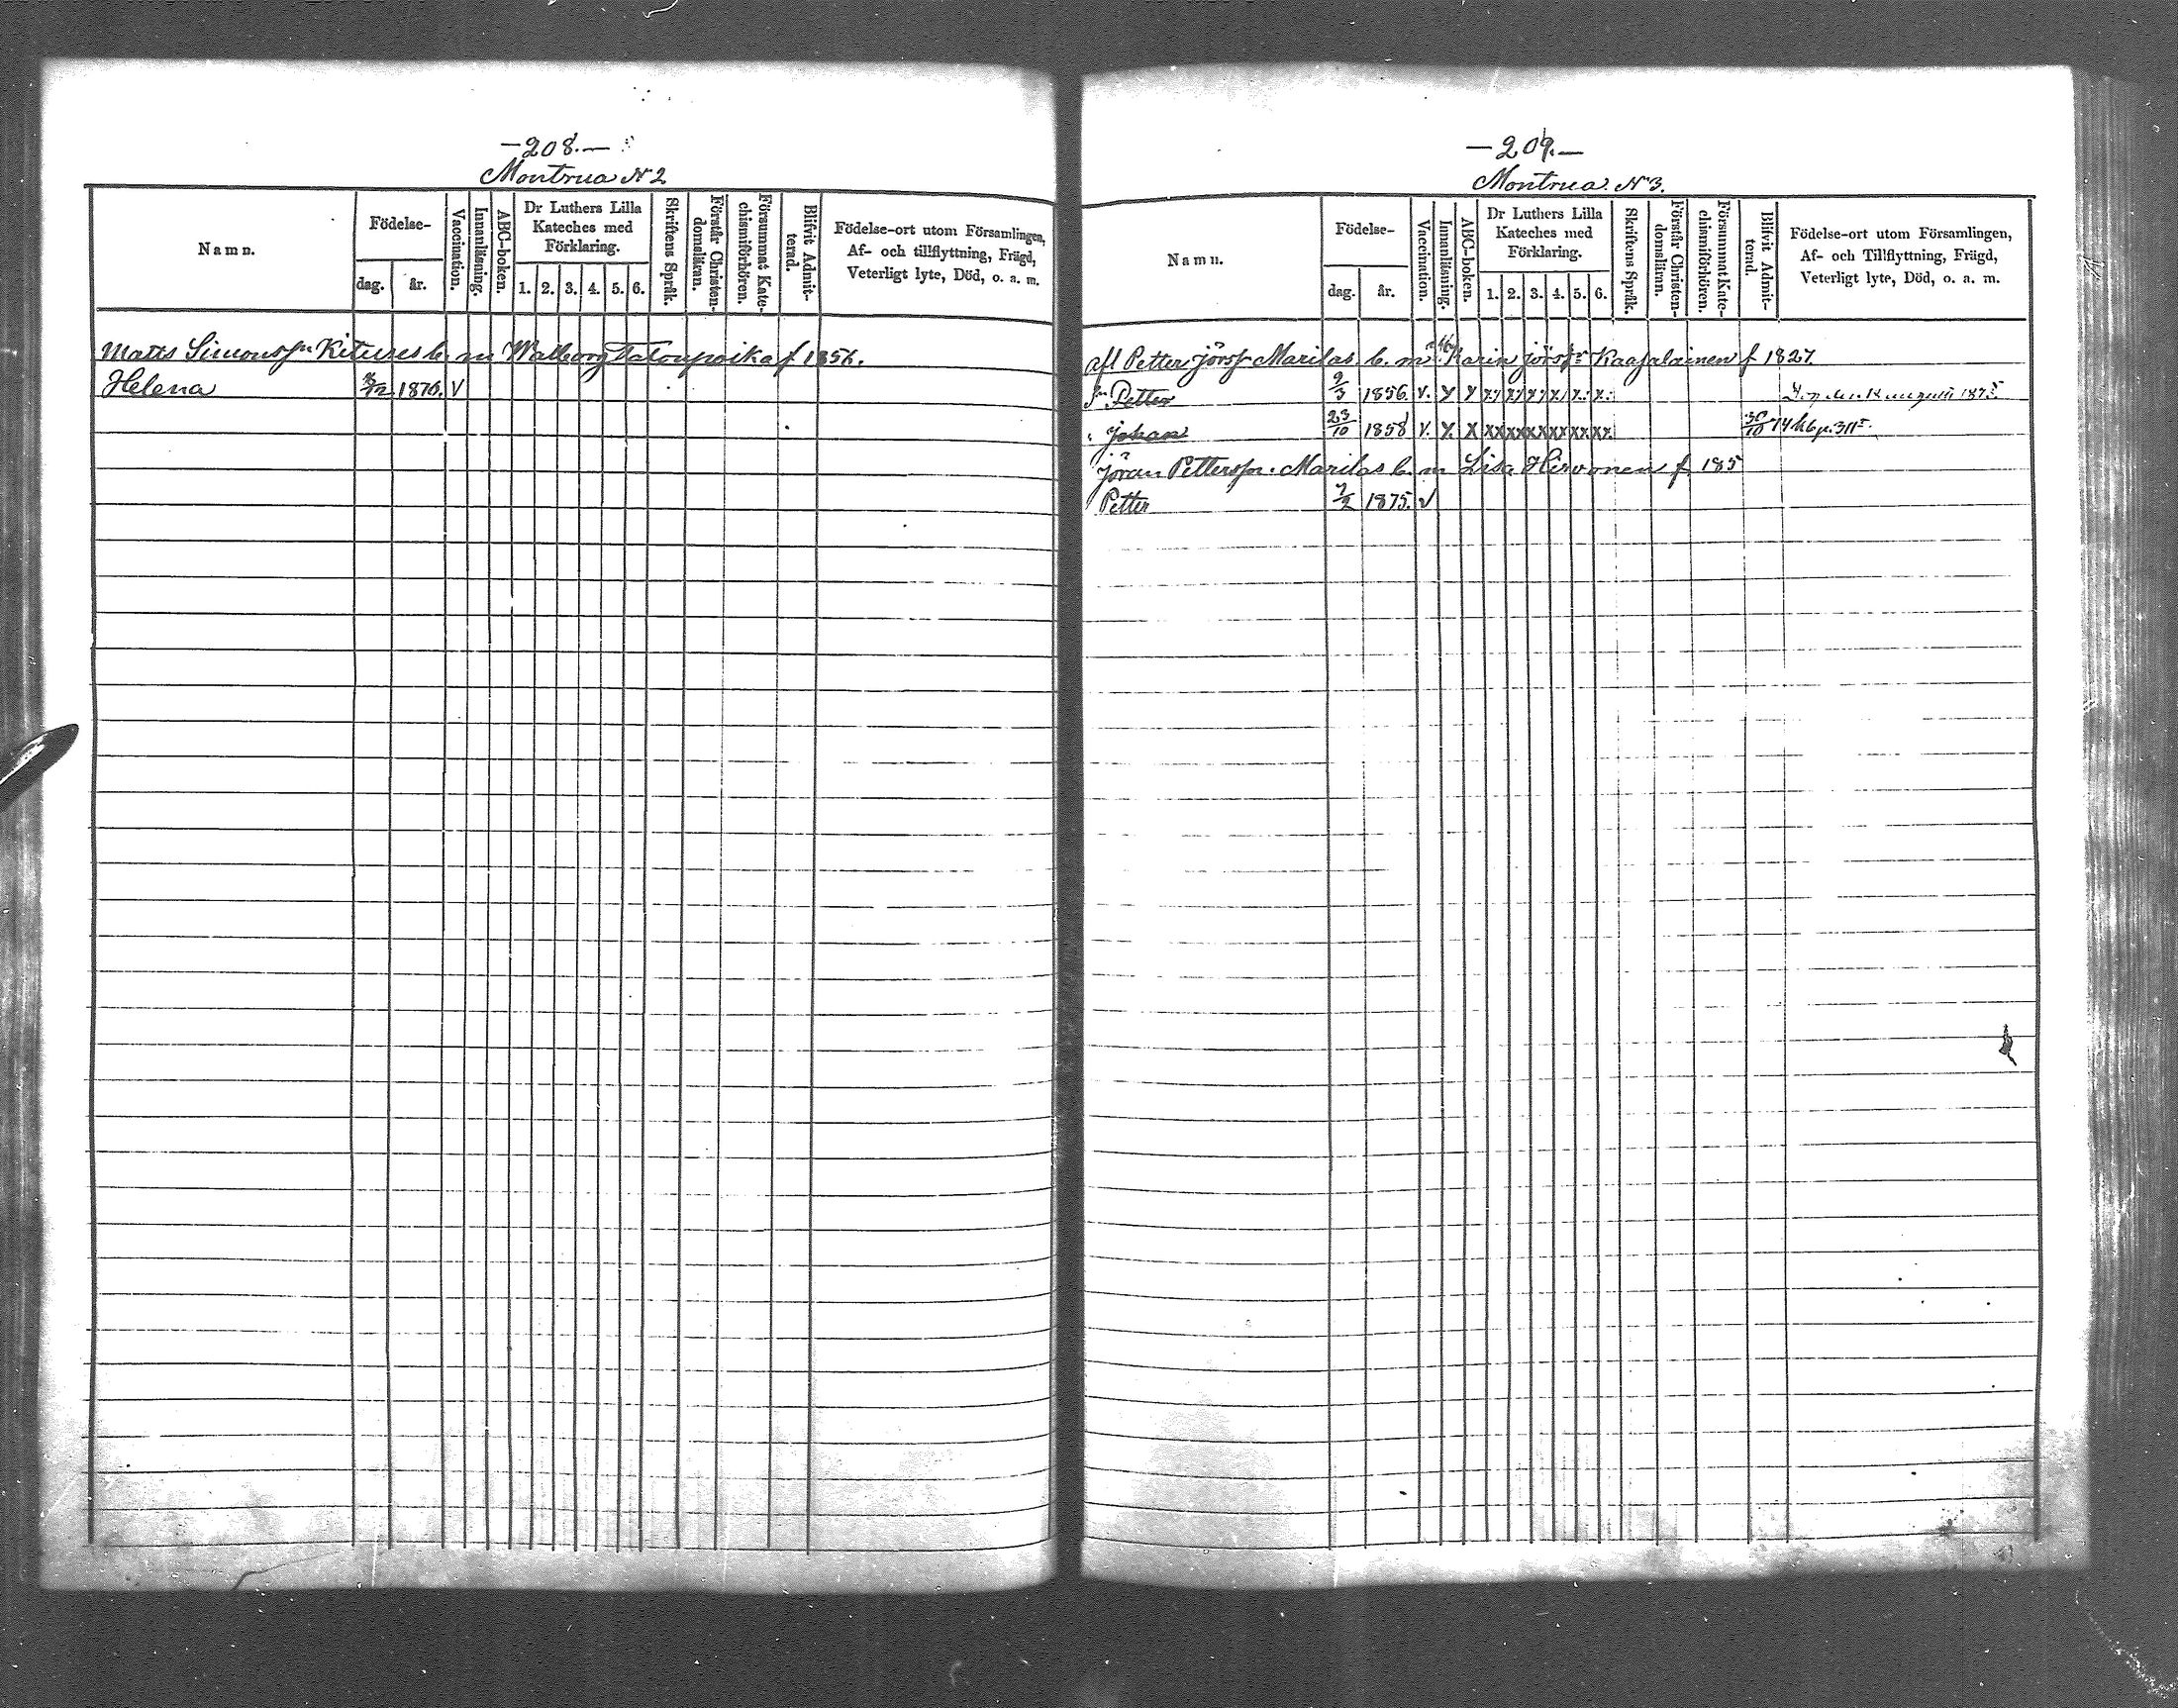 —208.—
Montrua N 2
Namn.
Födelse-
dag. år.
Vaccination.
Innanläsning.
ABC-boken.
Dr Luthers Lilla
Kateches med
Förklaring.
1. 2. 3. 4. 5. 6.
Skriftens Språk.
Förstår Christen-
domsläran.
Försummat Kate-
chismiförhören.
Blifvit Admit-
terad.
Födelse-ort utom Församlingen,
Af- och tillflyttning, Frägd,
Veterligt lyte, Död, o. a. m.
Matts Simonss:n Kitunes b. m Walborg Taloupoika f 1856.
Helena 1876. V
—209.—
Montrua. N 3.
Namn.
Födelse-
dag. år.
Vaccination.
Innanläsning.
ABC-boken.
Dr Luthers Lilla
Kateches med
Förklaring.
1. 2. 3. 4. 5. 6.
Skriftens Språk.
Förstår Christen-
domsläran.
Försummat Kate-
chismiförhören.
Blifvit Admit-
terad.
Födelse-ort utom Församlingen,
Af- och Tillflyttning, Frägd,
Veterligt lyte, Död, o. a. m.
afl Petter Jörsp. Marilas b. m Karin Jörsp:r Kaajalainen f 1827.
Sn Petter 9/3 1856. v. x x x x x x x x augusti 1875
" Johan 23/10 1858 v. x. x xx xx xx xx xx xx. 30/10 74 kb p. 311
Jöran Petterspn. Marilas b. m Lisa Hirvonen f 185
Petter 7/2 1875. v